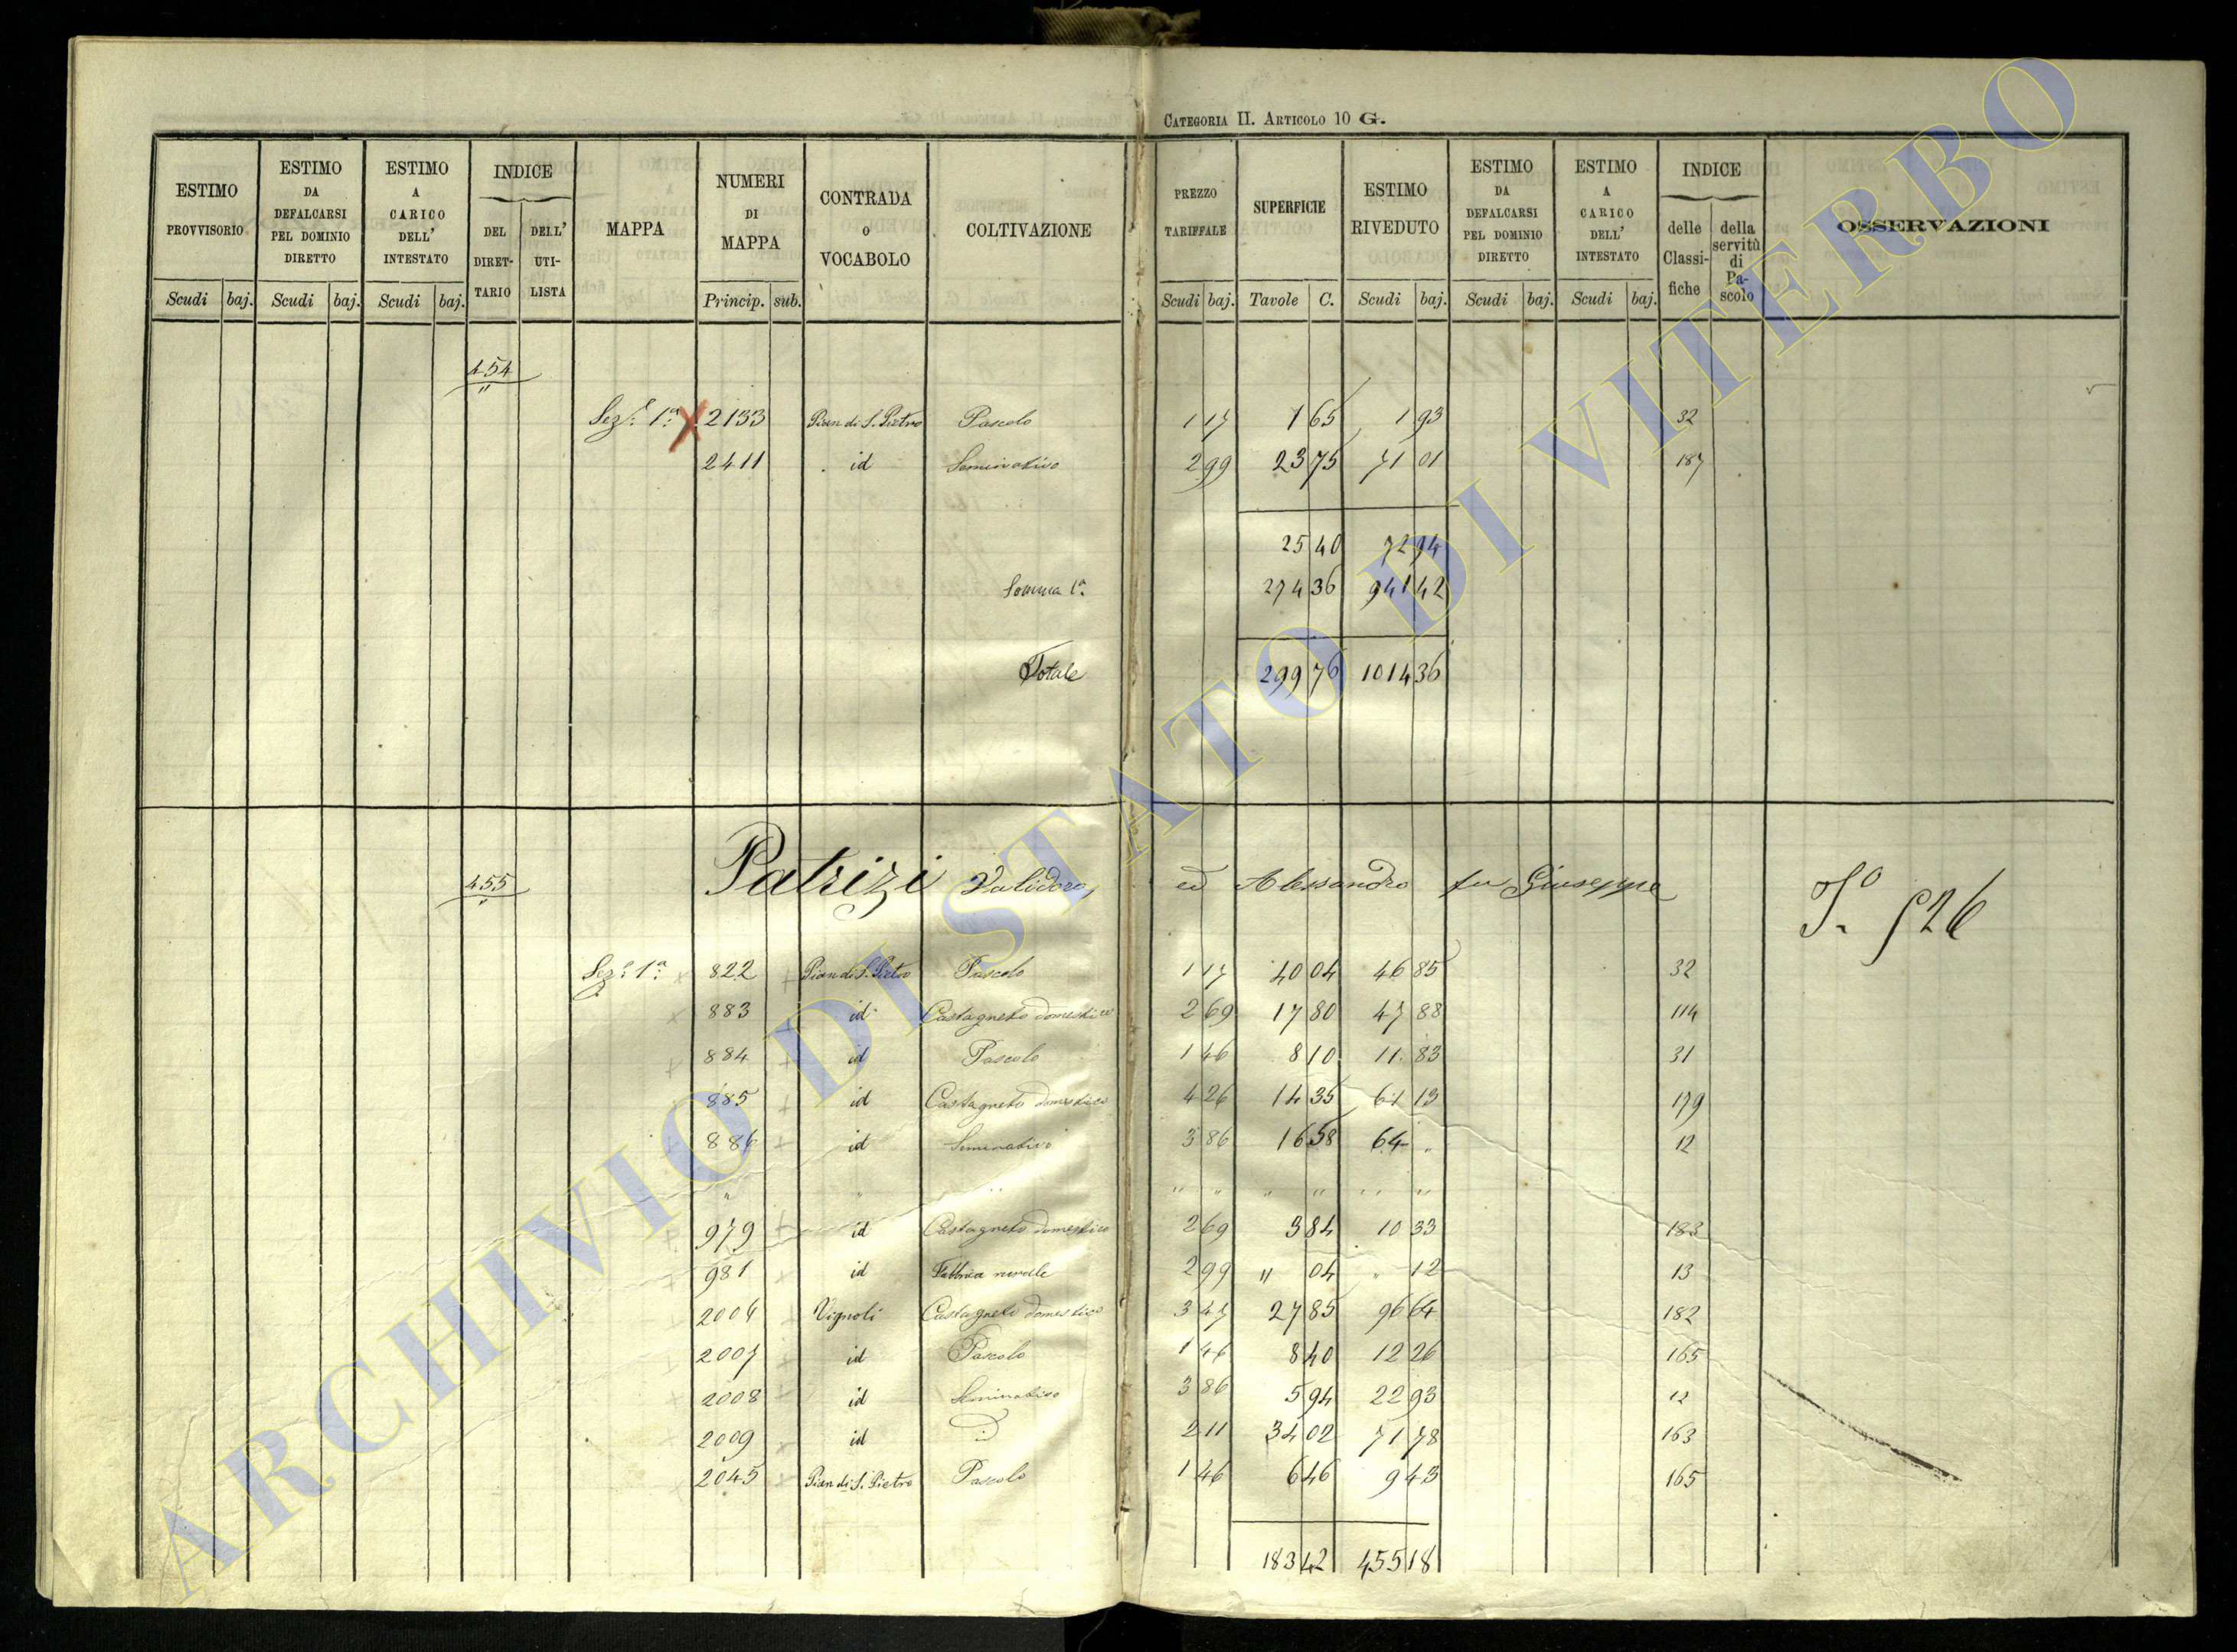 CATEGORIA II. ARTICOLO 10 G.
ESTIMO PROVVISORIO Scudi baj.
ESTIMO DA DEFALCARSI PEL DOMINIO DIRETTO Scudi baj.
ESTIMO A CARICO DELL' INTESTATO Scudi baj.
INDICE DEL DIRET-TARIO DELL' UTI-LISTA
MAPPA
NUMERI DI MAPPA Princip. sub.
CONTRADA O VOCABOLO
COLTIVAZIONE
PREZZO TARIFFALE Scudi baj.
SUPERFICIE Tavole C.
ESTIMO RIVEDUTO Scudi baj.
ESTIMO DA DEFALCARSI PEL DOMINIO DIRETTO Scudi baj.
ESTIMO A CARICO DELL' INTESTATO Scudi baj.
INDICE delle Classi-fiche della servitù di Pa-scolo
OSSERVAZIONI
454
"
Sez.e 1a. X 2133 Pian di S. Pietro Pascolo 1 17 1 65 1 93 32
2411 id Seminativo 2 99 23 75 71 01 187
25 40 72 94
Somma 1a. 274 36 941 42
Totale 299 76 1014 36
455
"
Patrizi Validoro, ed Alessandro fu Giuseppe
526
Sez.e 1a. 822 Pian di S. Pietro Pascolo 1 17 40 04 46 85 32
883 id Castagneto domestico 2 69 17 80 47 88 114
884 id Pascolo 1 46 8 10 11 83 31
885 id Castagneto domestico 4 26 14 35 61 13 179
886 id Seminativo 3 86 16 58 64 " 12
" " " " " " " " "
979 id Castagneto domestico 2 69 3 84 10 33 183
981 id Fabbrica rurale 2 99 " 04 " 12 13
2006 Vignoli Castagneto domestico 3 47 27 85 96 64 182
2007 id Pascolo 1 46 8 40 12 26 165
2008 id Seminativo 3 86 5 94 22 93 12
2009 id id 2 11 34 02 71 78 163
2045 Pian di S. Pietro Pascolo 1 46 6 46 9 43 165
183 42 455 18
ARCHIVIO DI STATO DI VITERBO